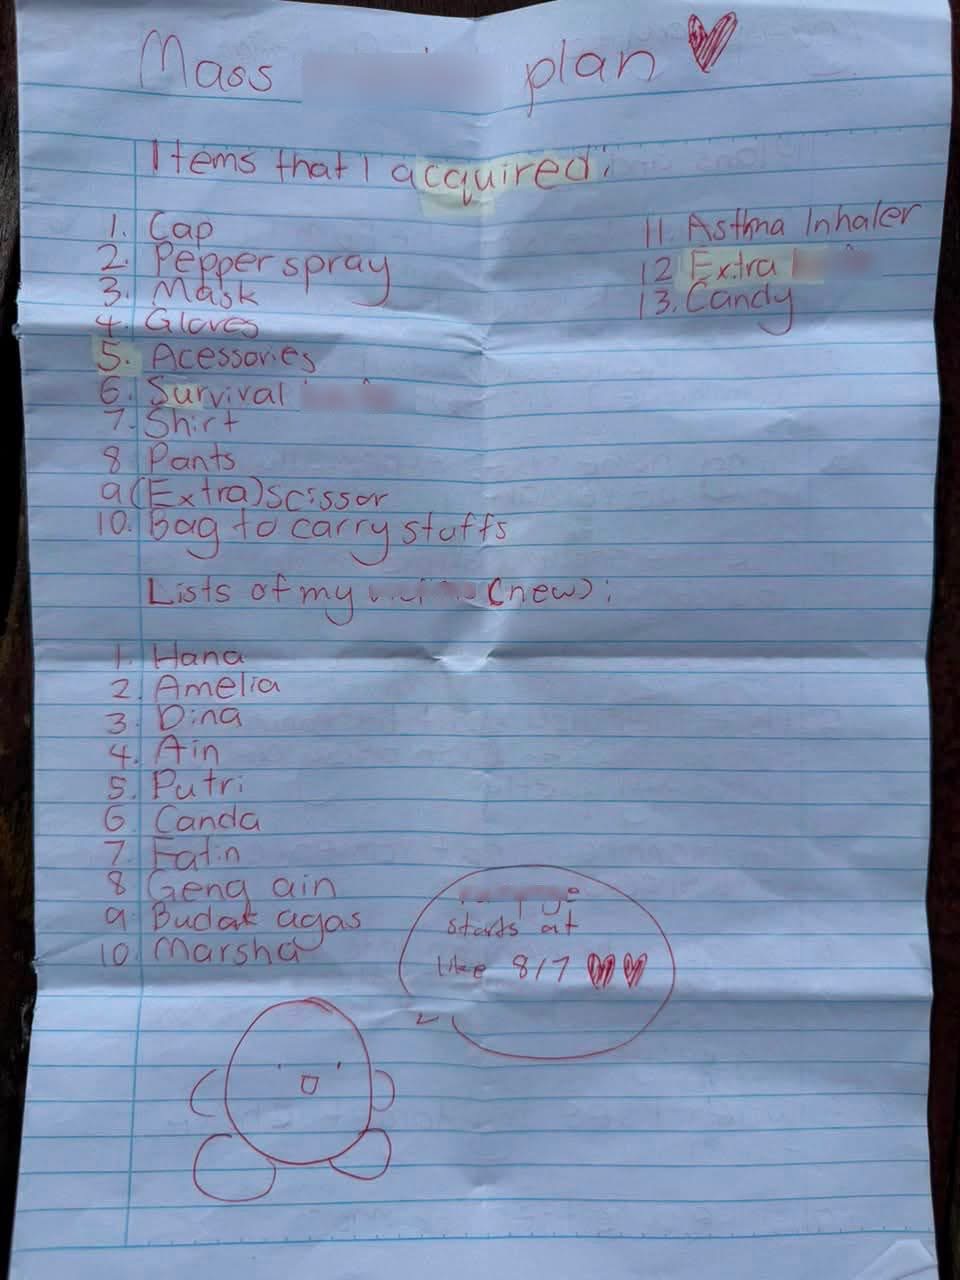 Mass plan
Items that I acquired:
1. Cap
2. Pepper spray
3. Mask
4. Gloves
5. Acessories
6. Survival
7. Shirt
8 Pants
9 (Extra) scissor
10. Bag to carry stuffs
11. Asthma Inhaler
12 Extra
13. Candy
Lists of my (new):
1. Hana
2. Amelia
3. Dina
4. Ain
5. Putri
6. Canda
7. Fatin
8 Geng ain
9 Budak agas
10. Marsha
starts at
like 8/7